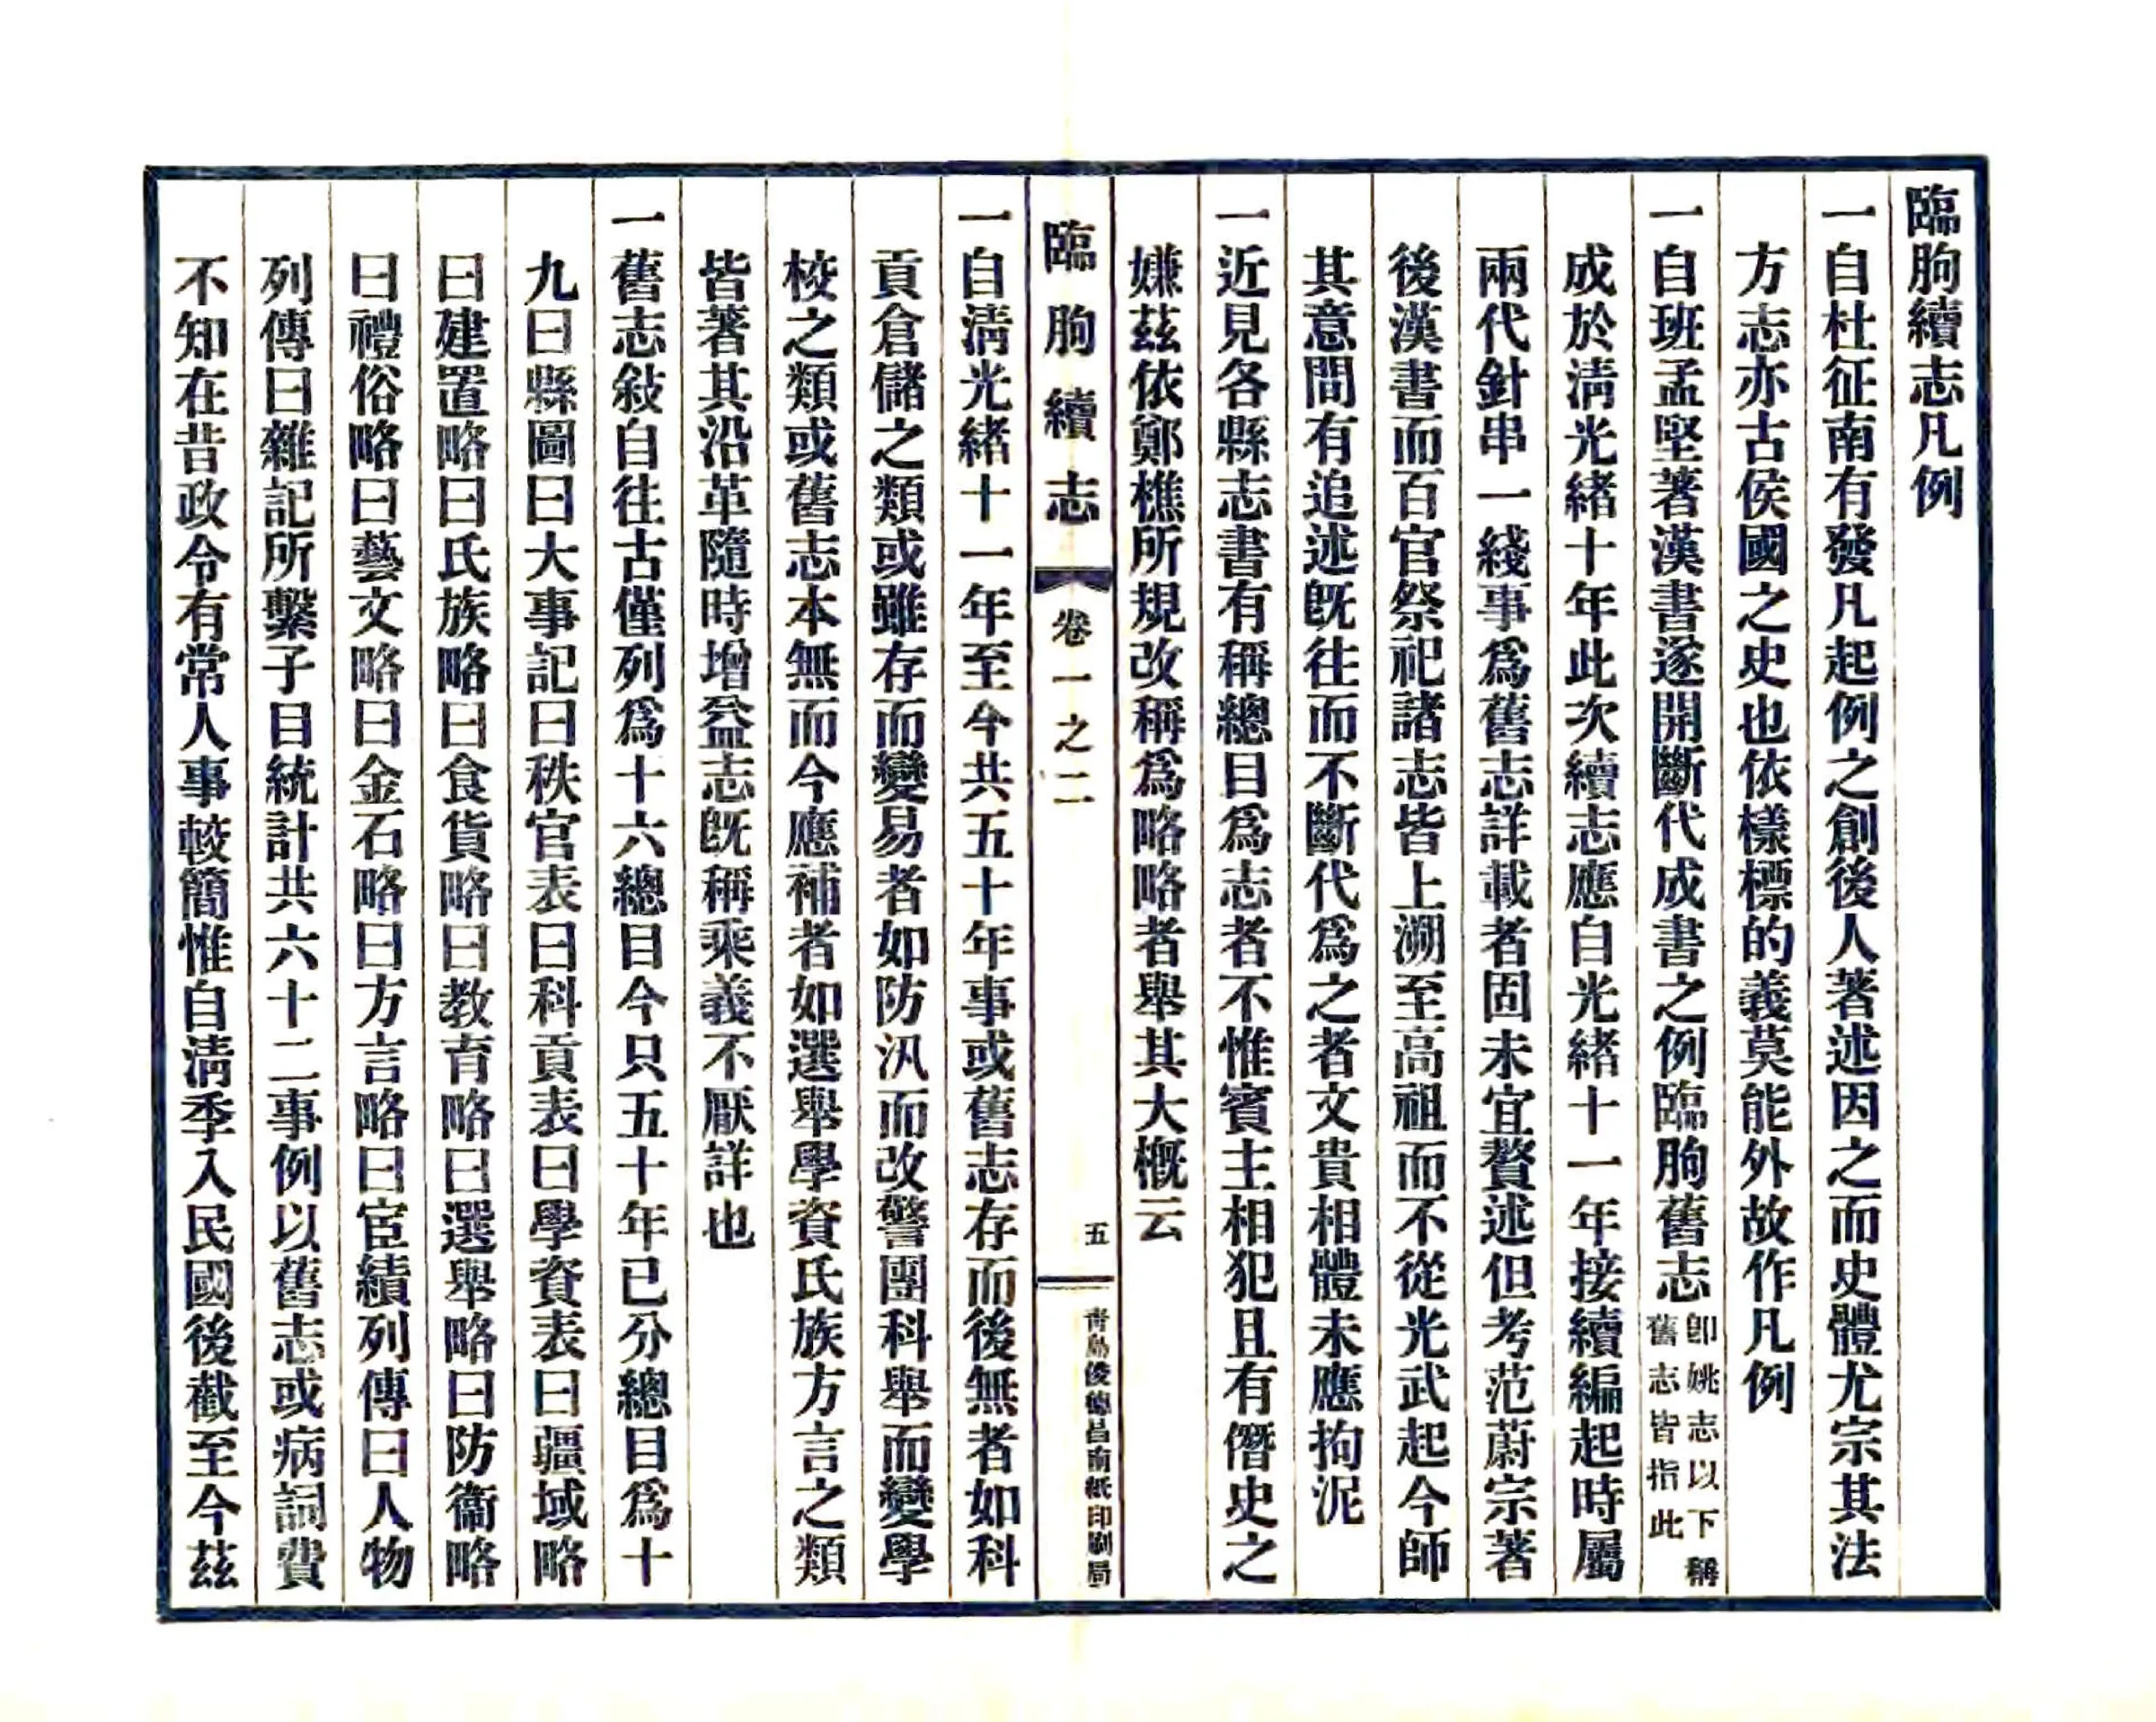 臨朐續志凡例
一自杜征南有發凡起例之創後人著述因之而史體尤宗其法
方志亦古侯國之史也依樣標的義莫能外故作凡例
一自班孟堅著漢書遂開斷代成書之例臨朐舊志卽姚志以下稱舊志皆指此
成於清光緒十年此次續志應自光緒十一年接續編起時屬
兩代針串一綫事爲舊志詳載者固未宜贅述但考范蔚宗著
後漢書而百官祭祀諸志皆上溯至高祖而不從光武起今師
其意間有追述既往而不斷代爲之者文貴相體未應拘泥
一近見各縣志書有稱總目爲志者不惟賓主相犯且有僭史之
嫌茲依鄭樵所規改稱爲略略者舉其大概云
臨朐續志 卷一之二 五 青島俊德昌南紙印刷局
一自清光緒十一年至今共五十年事或舊志存而後無者如科
貢倉儲之類或雖存而變易者如防汛而改警團科舉而變學
校之類或舊志本無而今應補者如選舉學資氏族方言之類
皆著其沿革隨時增益志既稱乘義不厭詳也
一舊志敍自往古僅列爲十六總目今只五十年已分總目爲十
九曰縣圖曰大事記曰秩官表曰科貢表曰學資表曰疆域略
曰建置略曰氏族略曰食貨略曰教育略曰選舉略曰防衞略
曰禮俗略曰藝文略曰金石略曰方言略曰宦績列傳曰人物
列傳曰雜記所繫子目統計共六十二事例以舊志或病詞費
不知在昔政令有常人事較簡惟自清季入民國後截至今茲